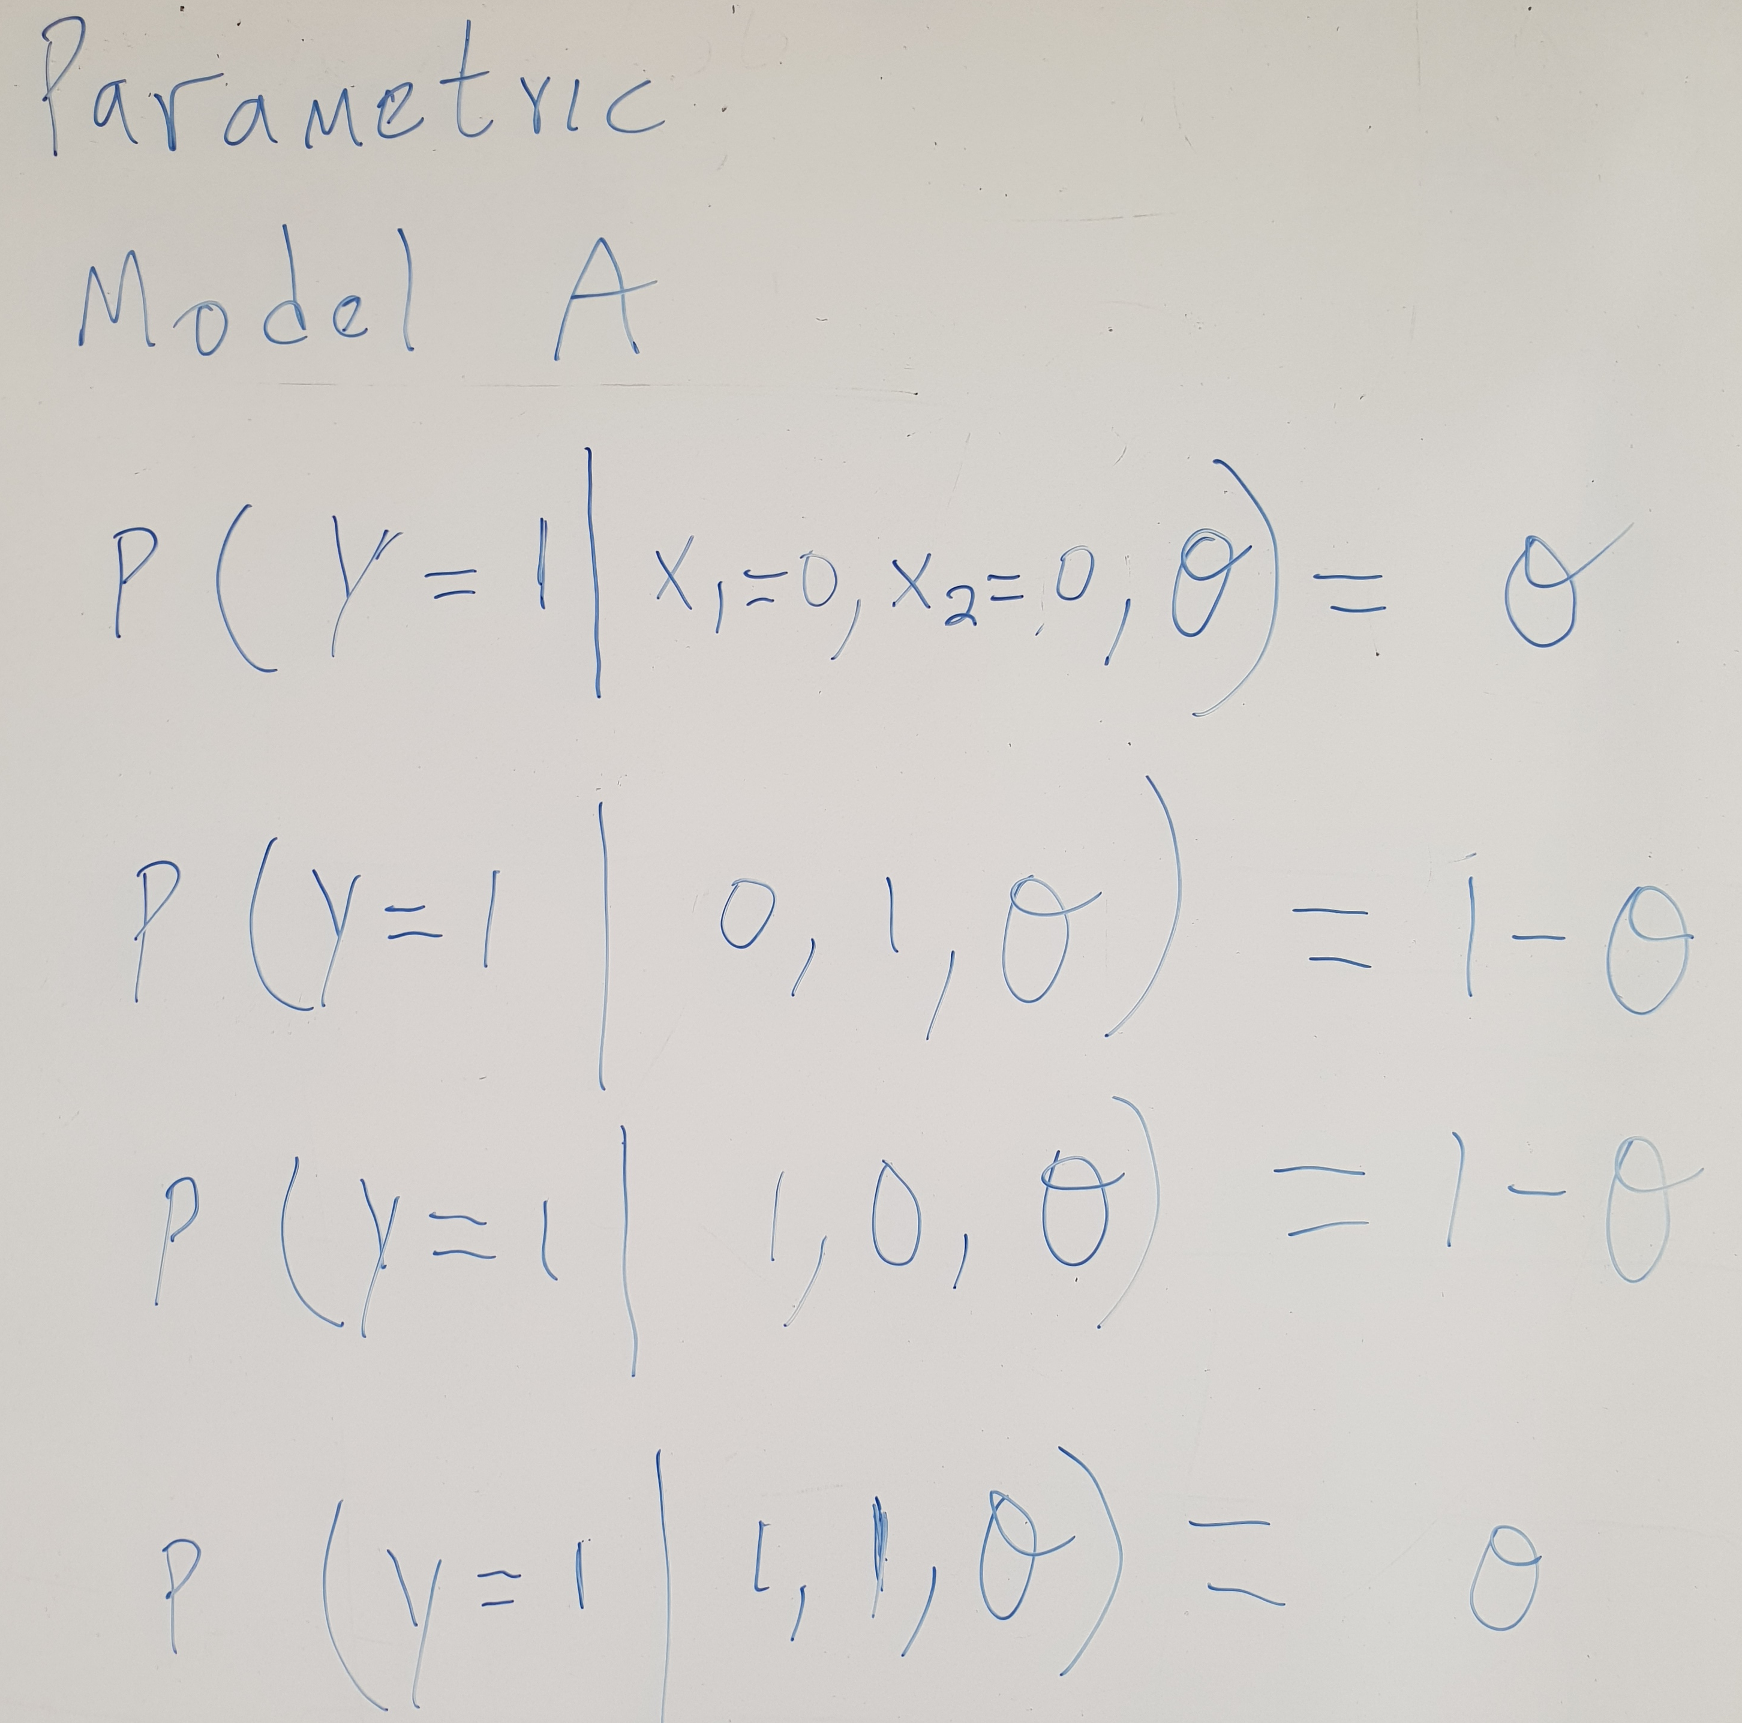 Parametric
Model A
P ( Y = 1 | X₁ = 0, X₂ = 0, θ ) = θ
P ( Y = 1 | 0, 1, θ ) = 1 - θ
P ( Y = 1 | 1, 0, θ ) = 1 - θ
P ( Y = 1 | 1, 1, θ ) = θ